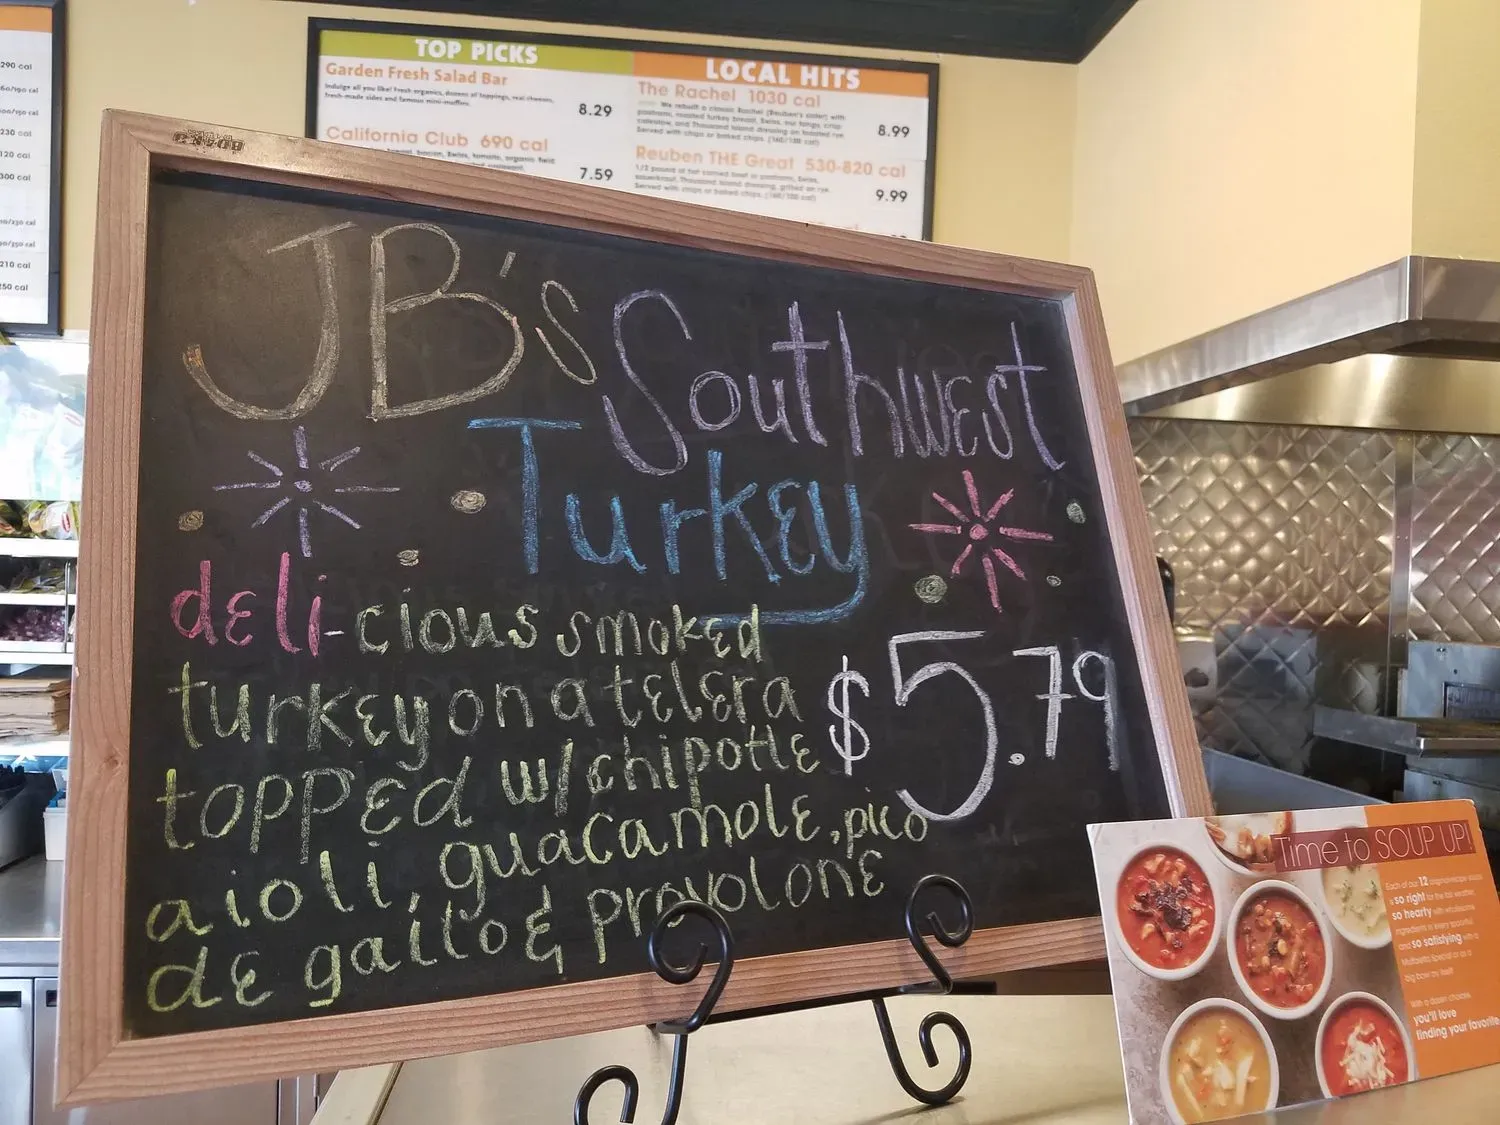 TOP PICKS
Garden Fresh Salad Bar
Indulge all you like! Fresh organics, dozens of toppings, real cheeses,
fresh-made sides and famous mini-muffins.
8.29
California Club 690 cal
7.59
LOCAL HITS
The Rachel 1030 cal
We rebuilt a classic Rachel (Reuben's sister) with
pastrami, roasted turkey breast, Swiss, nur tangy, crisp
coleslaw, and Thousand Island dressing on toasted rye.
Served with chips or baked chips. (160/100 cal)
8.99
Reuben THE Great 530-820 cal
1/2 pound of hot corned beef or pastrami, Swiss,
sauerkraut, Thousand Island dressing, grilled on rye.
Served with chips or baked chips. (160/100 cal)
9.99
290 cal
230 cal
120 cal
300 cal
210 cal
250 cal
JB's Southwest
Turkey
deli-cious smoked
turkey on a telera
topped w/ chipotle
aioli, guacamole, pico
de gallo & provolone
$5.79
Time to SOUP UP!
Each of our 12
is so right
so hearty with wholesome
ingredients in every spoonful
and so satisfying with a
Muffaletta Special or as a
big bowl by itself
With a dozen choices
you'll love
finding your favorite